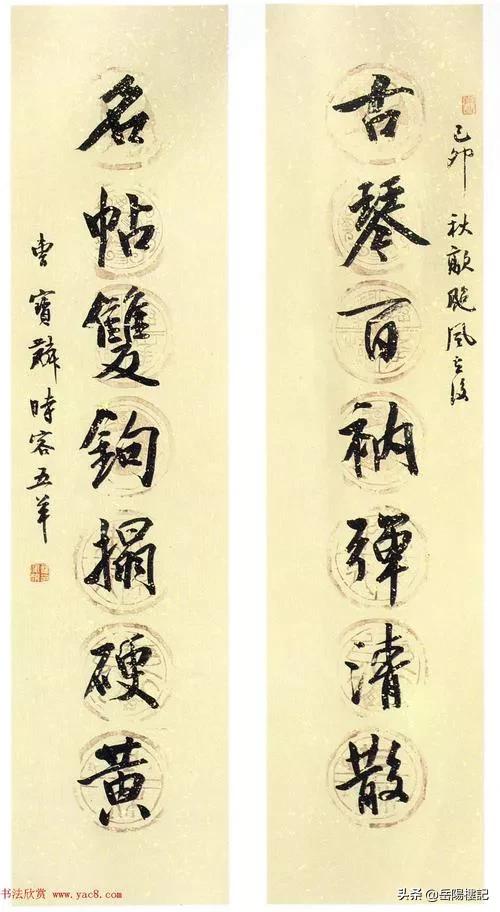 己卯秋颱風之後
古琴百衲彈清散
名帖雙鉤搨硬黄
曹寶麟時客五羊
书法欣赏 www.yac8.com
头条 @岳陽樓記